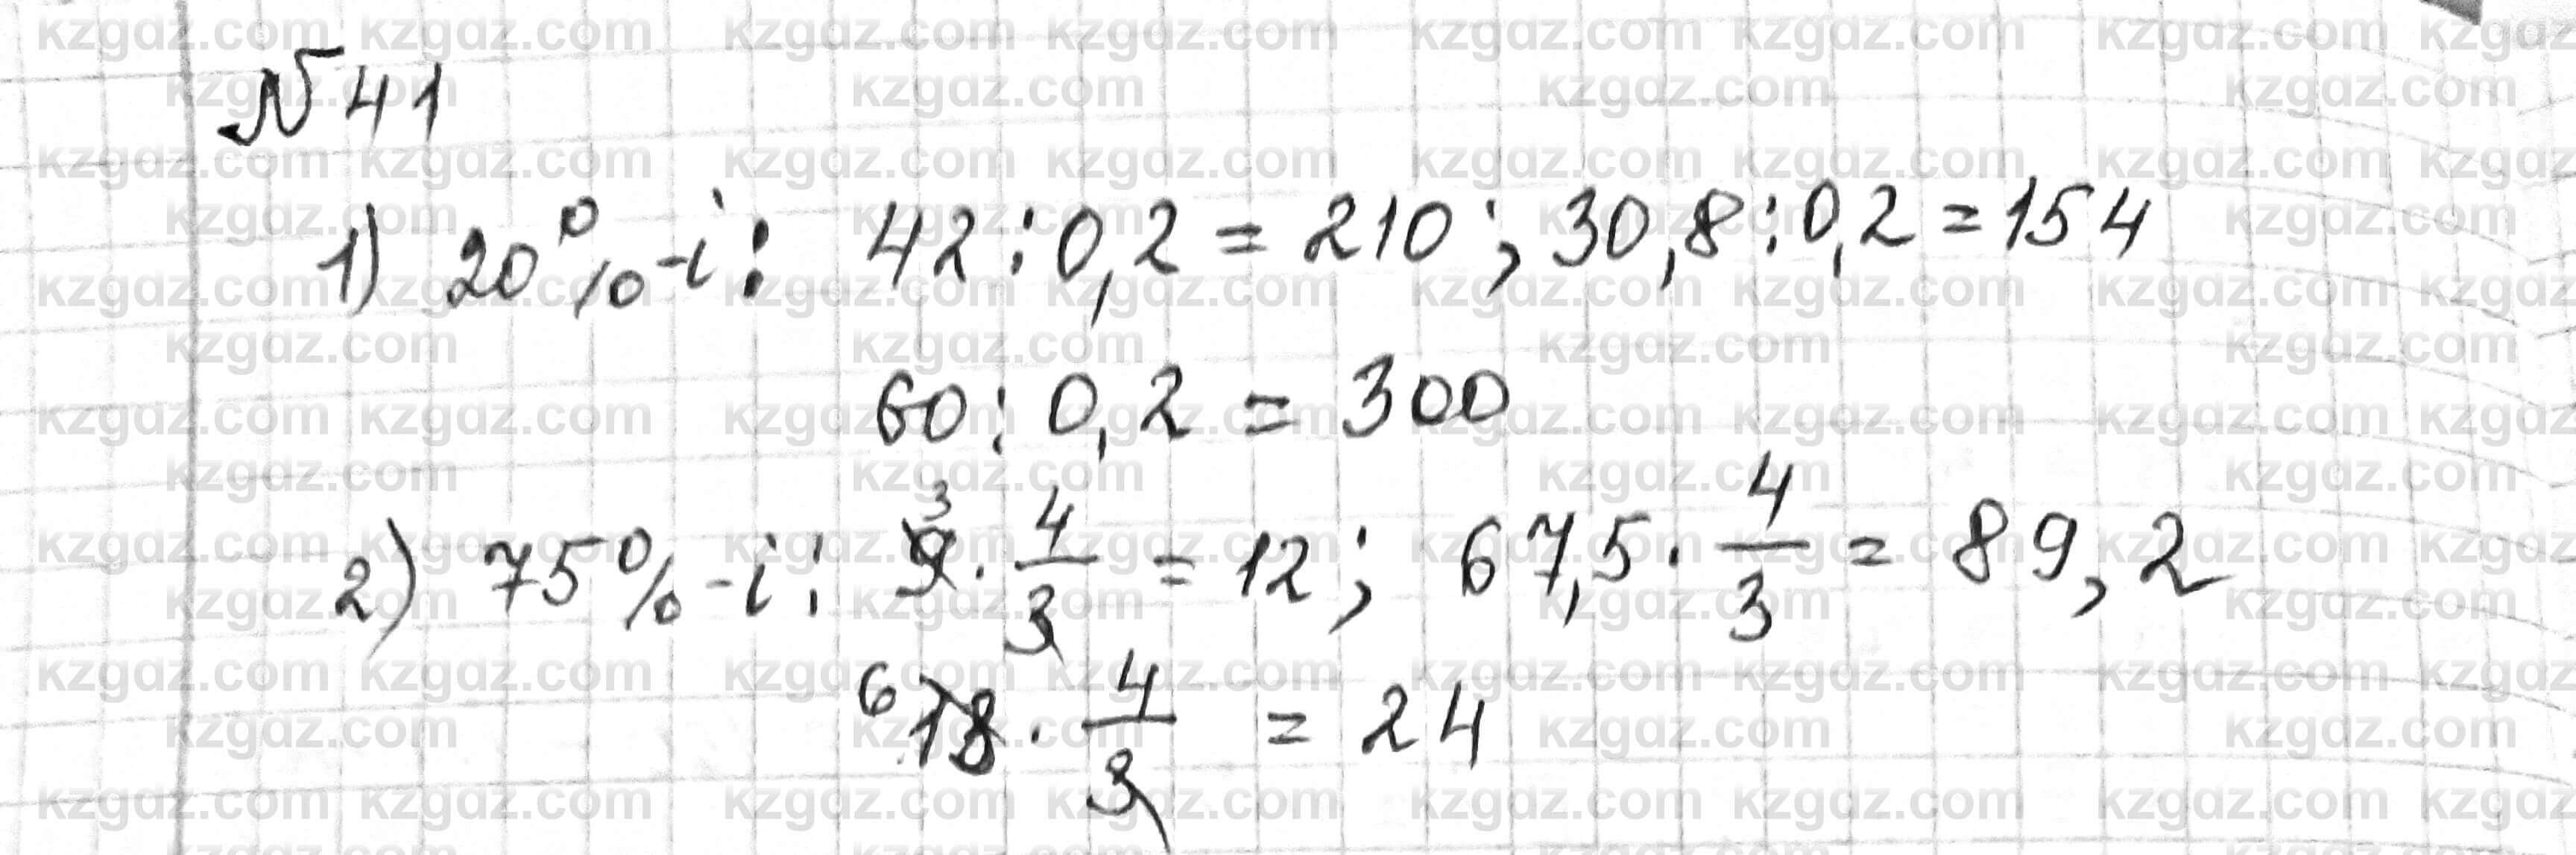 № 41
1) 20%-i: 42 : 0,2 = 210; 30,8 : 0,2 = 154
60 : 0,2 = 300
2) 75%-i: 9³ · 4/3 = 12; 67,5 · 4/3 = 89,2
⁶18 · 4/3 = 24
kzgaz.com